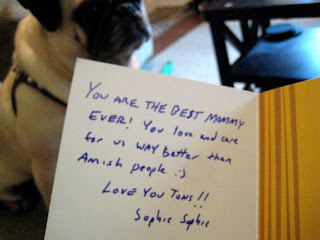 You are the best Mommy
ever! You love and care
for us WAY better than
Amish people :)
Love you tons!!
Sophie Sophie